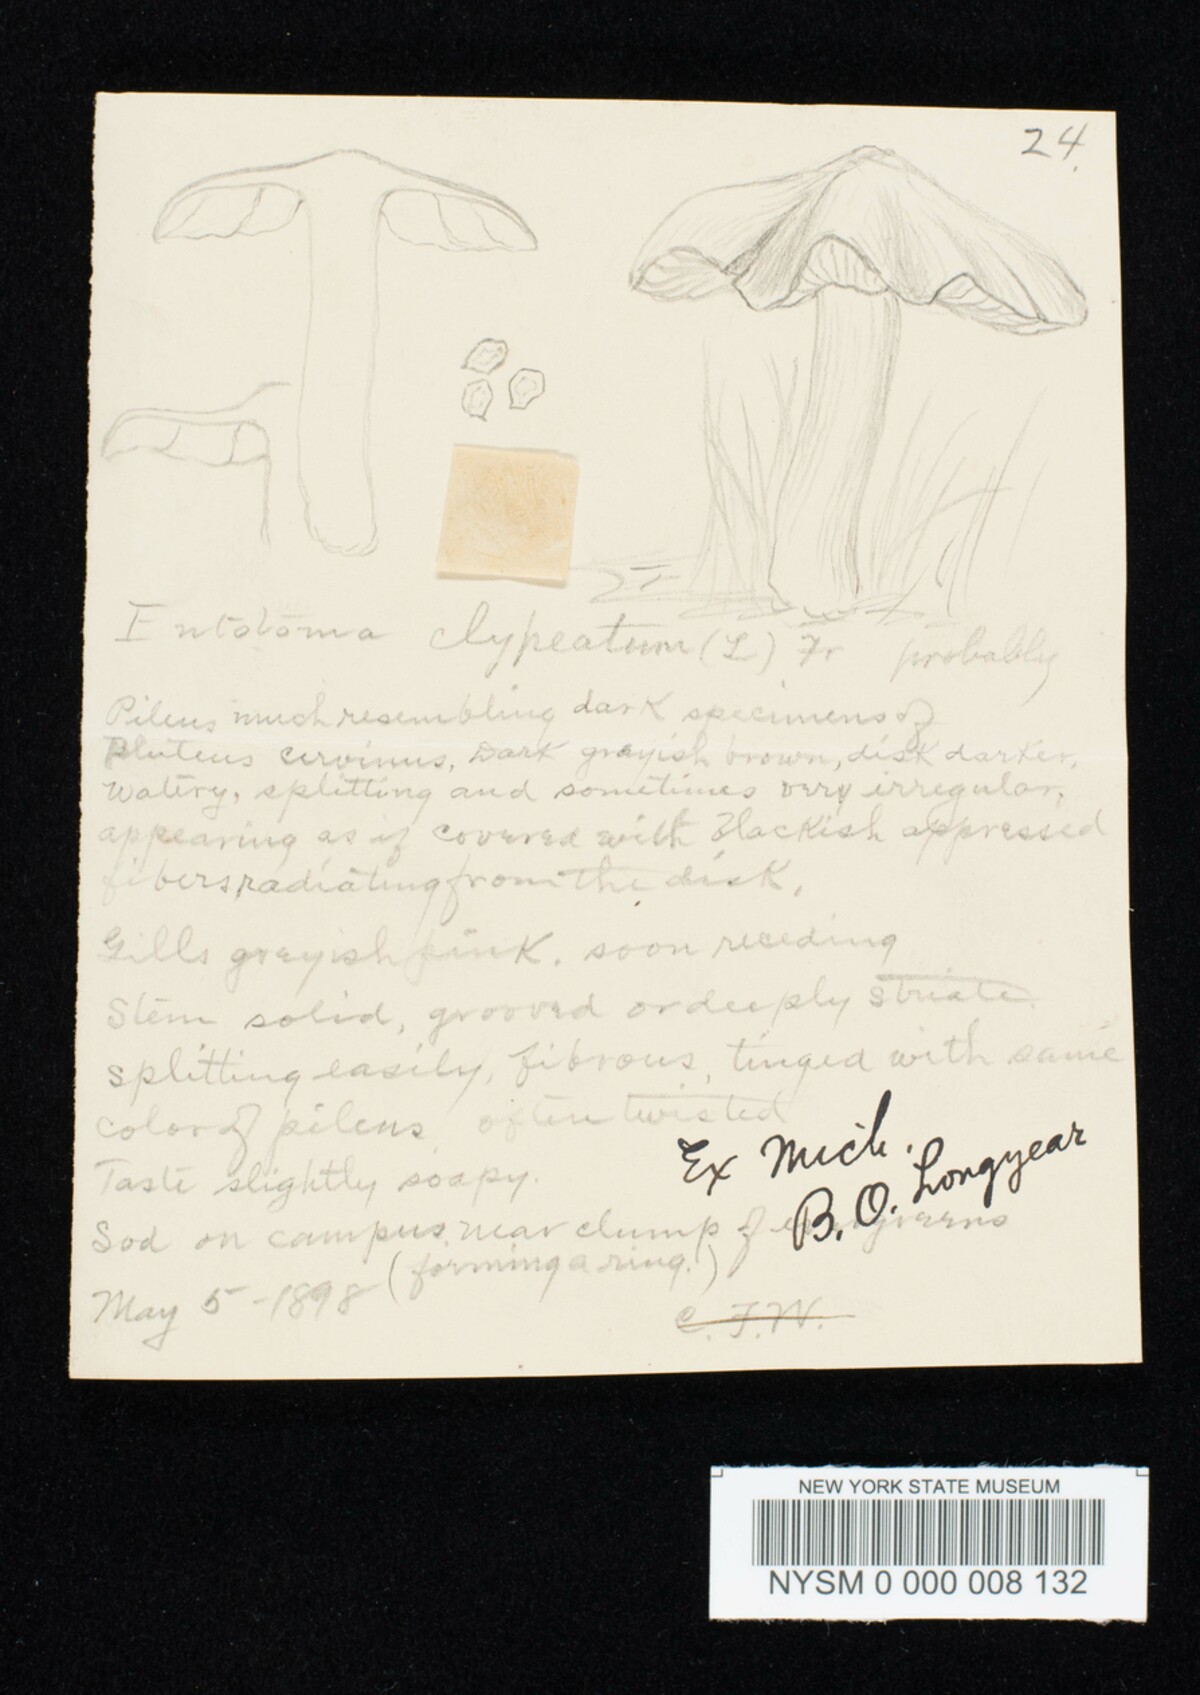 24.
Entoloma clypeatum (L) Fr probably
Pileus much resembling dark specimens of
Pluteus cervinus, Dark grayish brown, disk darker,
watery, splitting and sometimes very irregular,
appearing as if covered with blackish appressed
fibers radiating from the disk.
Gills grayish pink. soon receding
Stem solid, grooved or deeply striate.
splitting easily, fibrous, tinged with same
color of pileus often twisted
Taste slightly soapy.
Ex Mich.
B. O. Longyear
Sod on campus near clump of evergreens
(forming a ring.)
May 5 - 1898
C. F. W.
NEW YORK STATE MUSEUM
NYSM 0 000 008 132